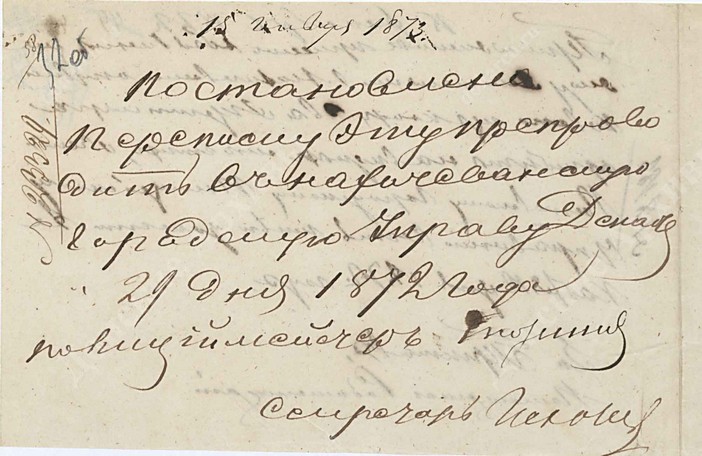 15 Января 1873
Постановлена
Переписку Эту препрово
дить въ нахичеванскую
Городскую Управу Декабря
29 дня 1872 года
полицiймейстеръ
Секретарь